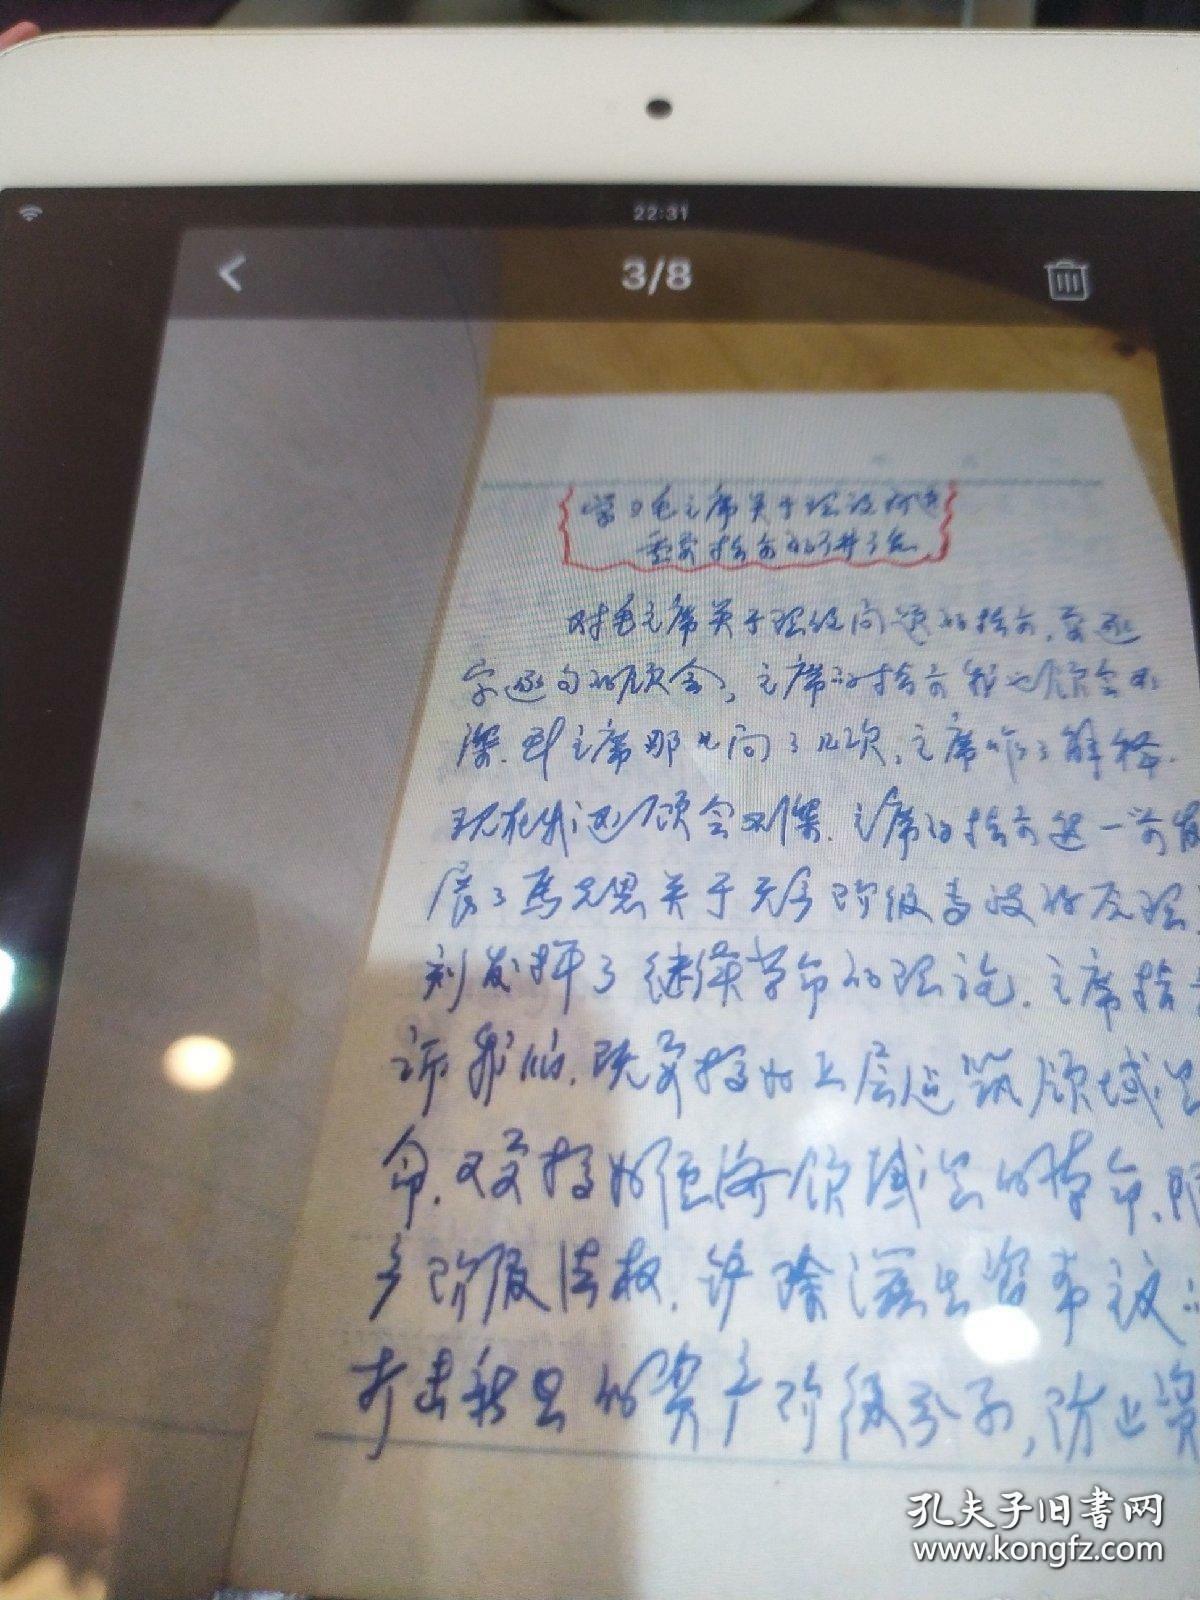 22:31
3/8
学习毛主席关于理论问题
重要指示的讲话
对毛主席关于理论问题的指示,要逐
字逐句的领会,主席的指示我也领会不
深.到主席那儿问了几次,主席作了解释.
现在我还领会不深.主席的指示进一步发
展了马克思关于无产阶级专政的理
刻发挥了继续革命的理论.主席指
诉我们.既要搞好上层建筑领域里
命.又要搞好经济领域里的革命.
产阶级法权.铲除滋生资本主义
打击新生的资产阶级分子,防止资
孔夫子旧书网
www.kongfz.com